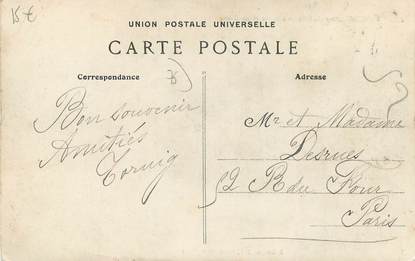 15€
UNION POSTALE UNIVERSELLE
CARTE POSTALE
Correspondance
Adresse
Bon souvenir
Amitiés
Mr et Madame
Desrues
52 R du Four
Paris